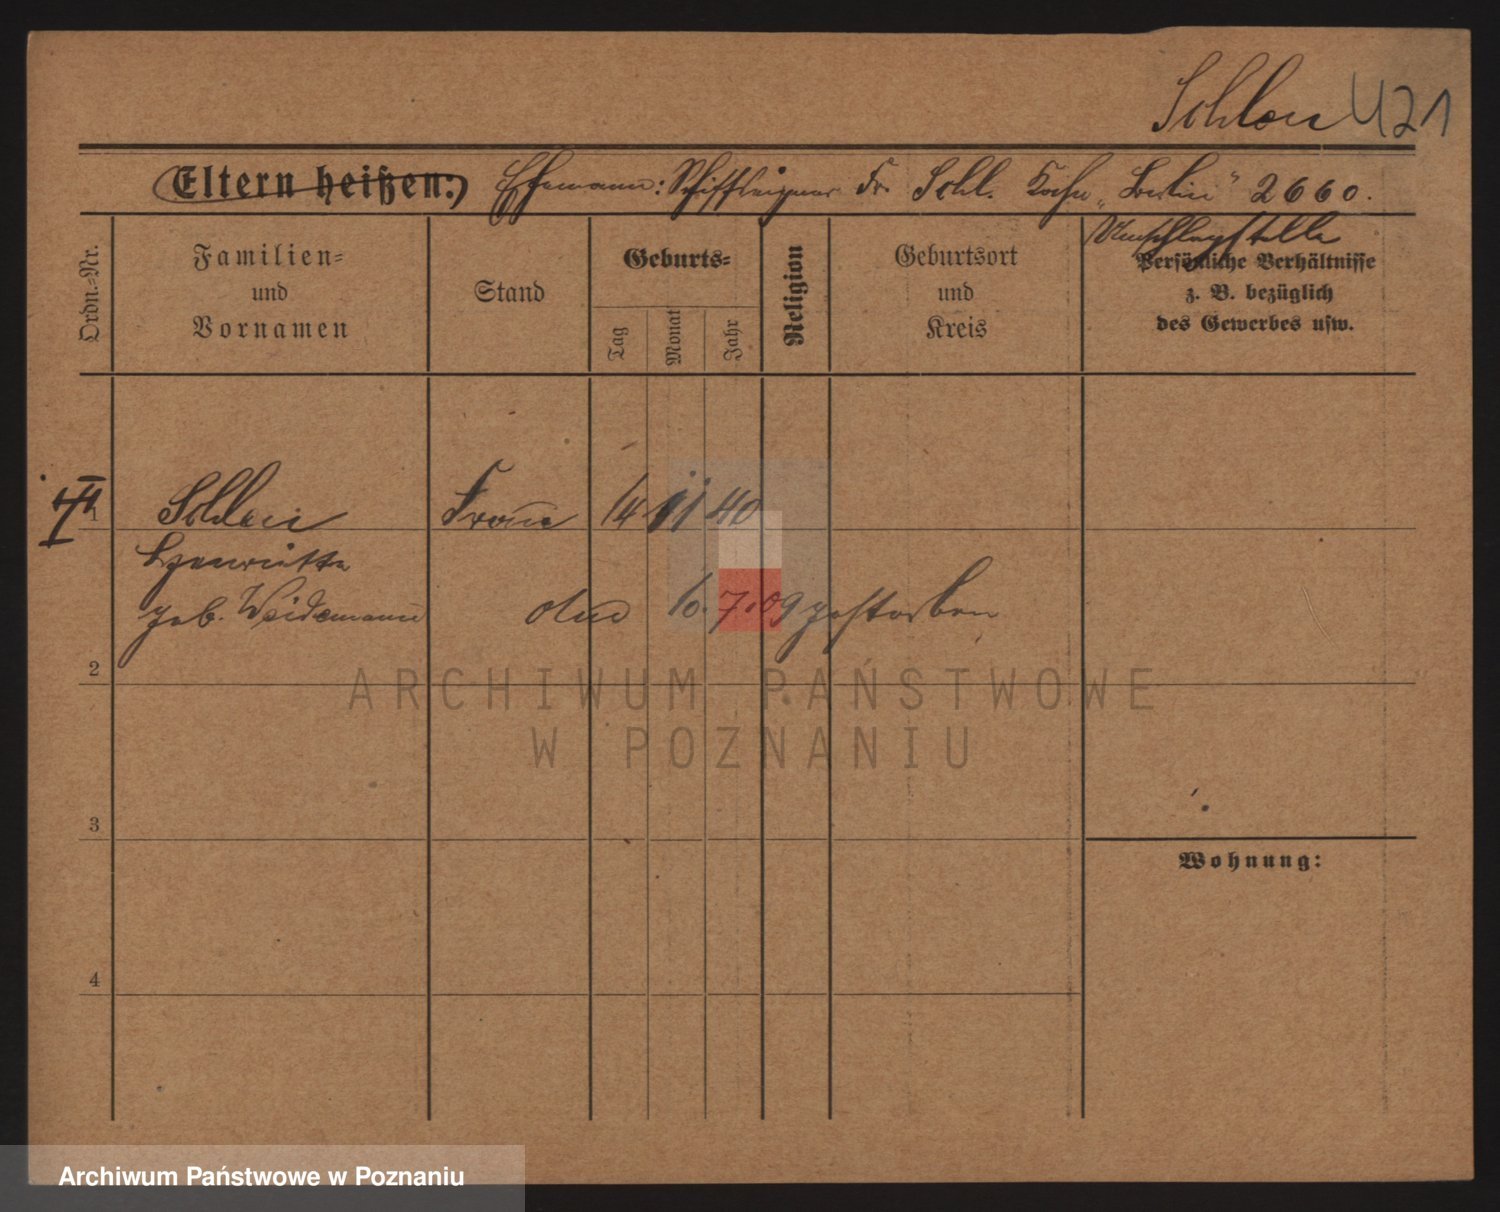 Schlau 421
Eltern heißen: Ehemann: Schiffseigner Fr. Schl. Kahn „Berlin“ 2660.
Umschlagstelle
Ordn.-Nr.
Familien- und Vornamen
Stand
Geburts-
Tag
Monat
Jahr
Religion
Geburtsort und Kreis
Persönliche Verhältnisse
z. B. bezüglich
des Gewerbes usw.
1
Frau 14 11 40
Henriette
geb. Weidemann
10. 7. 09 gestorben
2
ARCHIWUM PAŃSTWOWE
W POZNANIU
3
Wohnung:
4
Archiwum Państwowe w Poznaniu